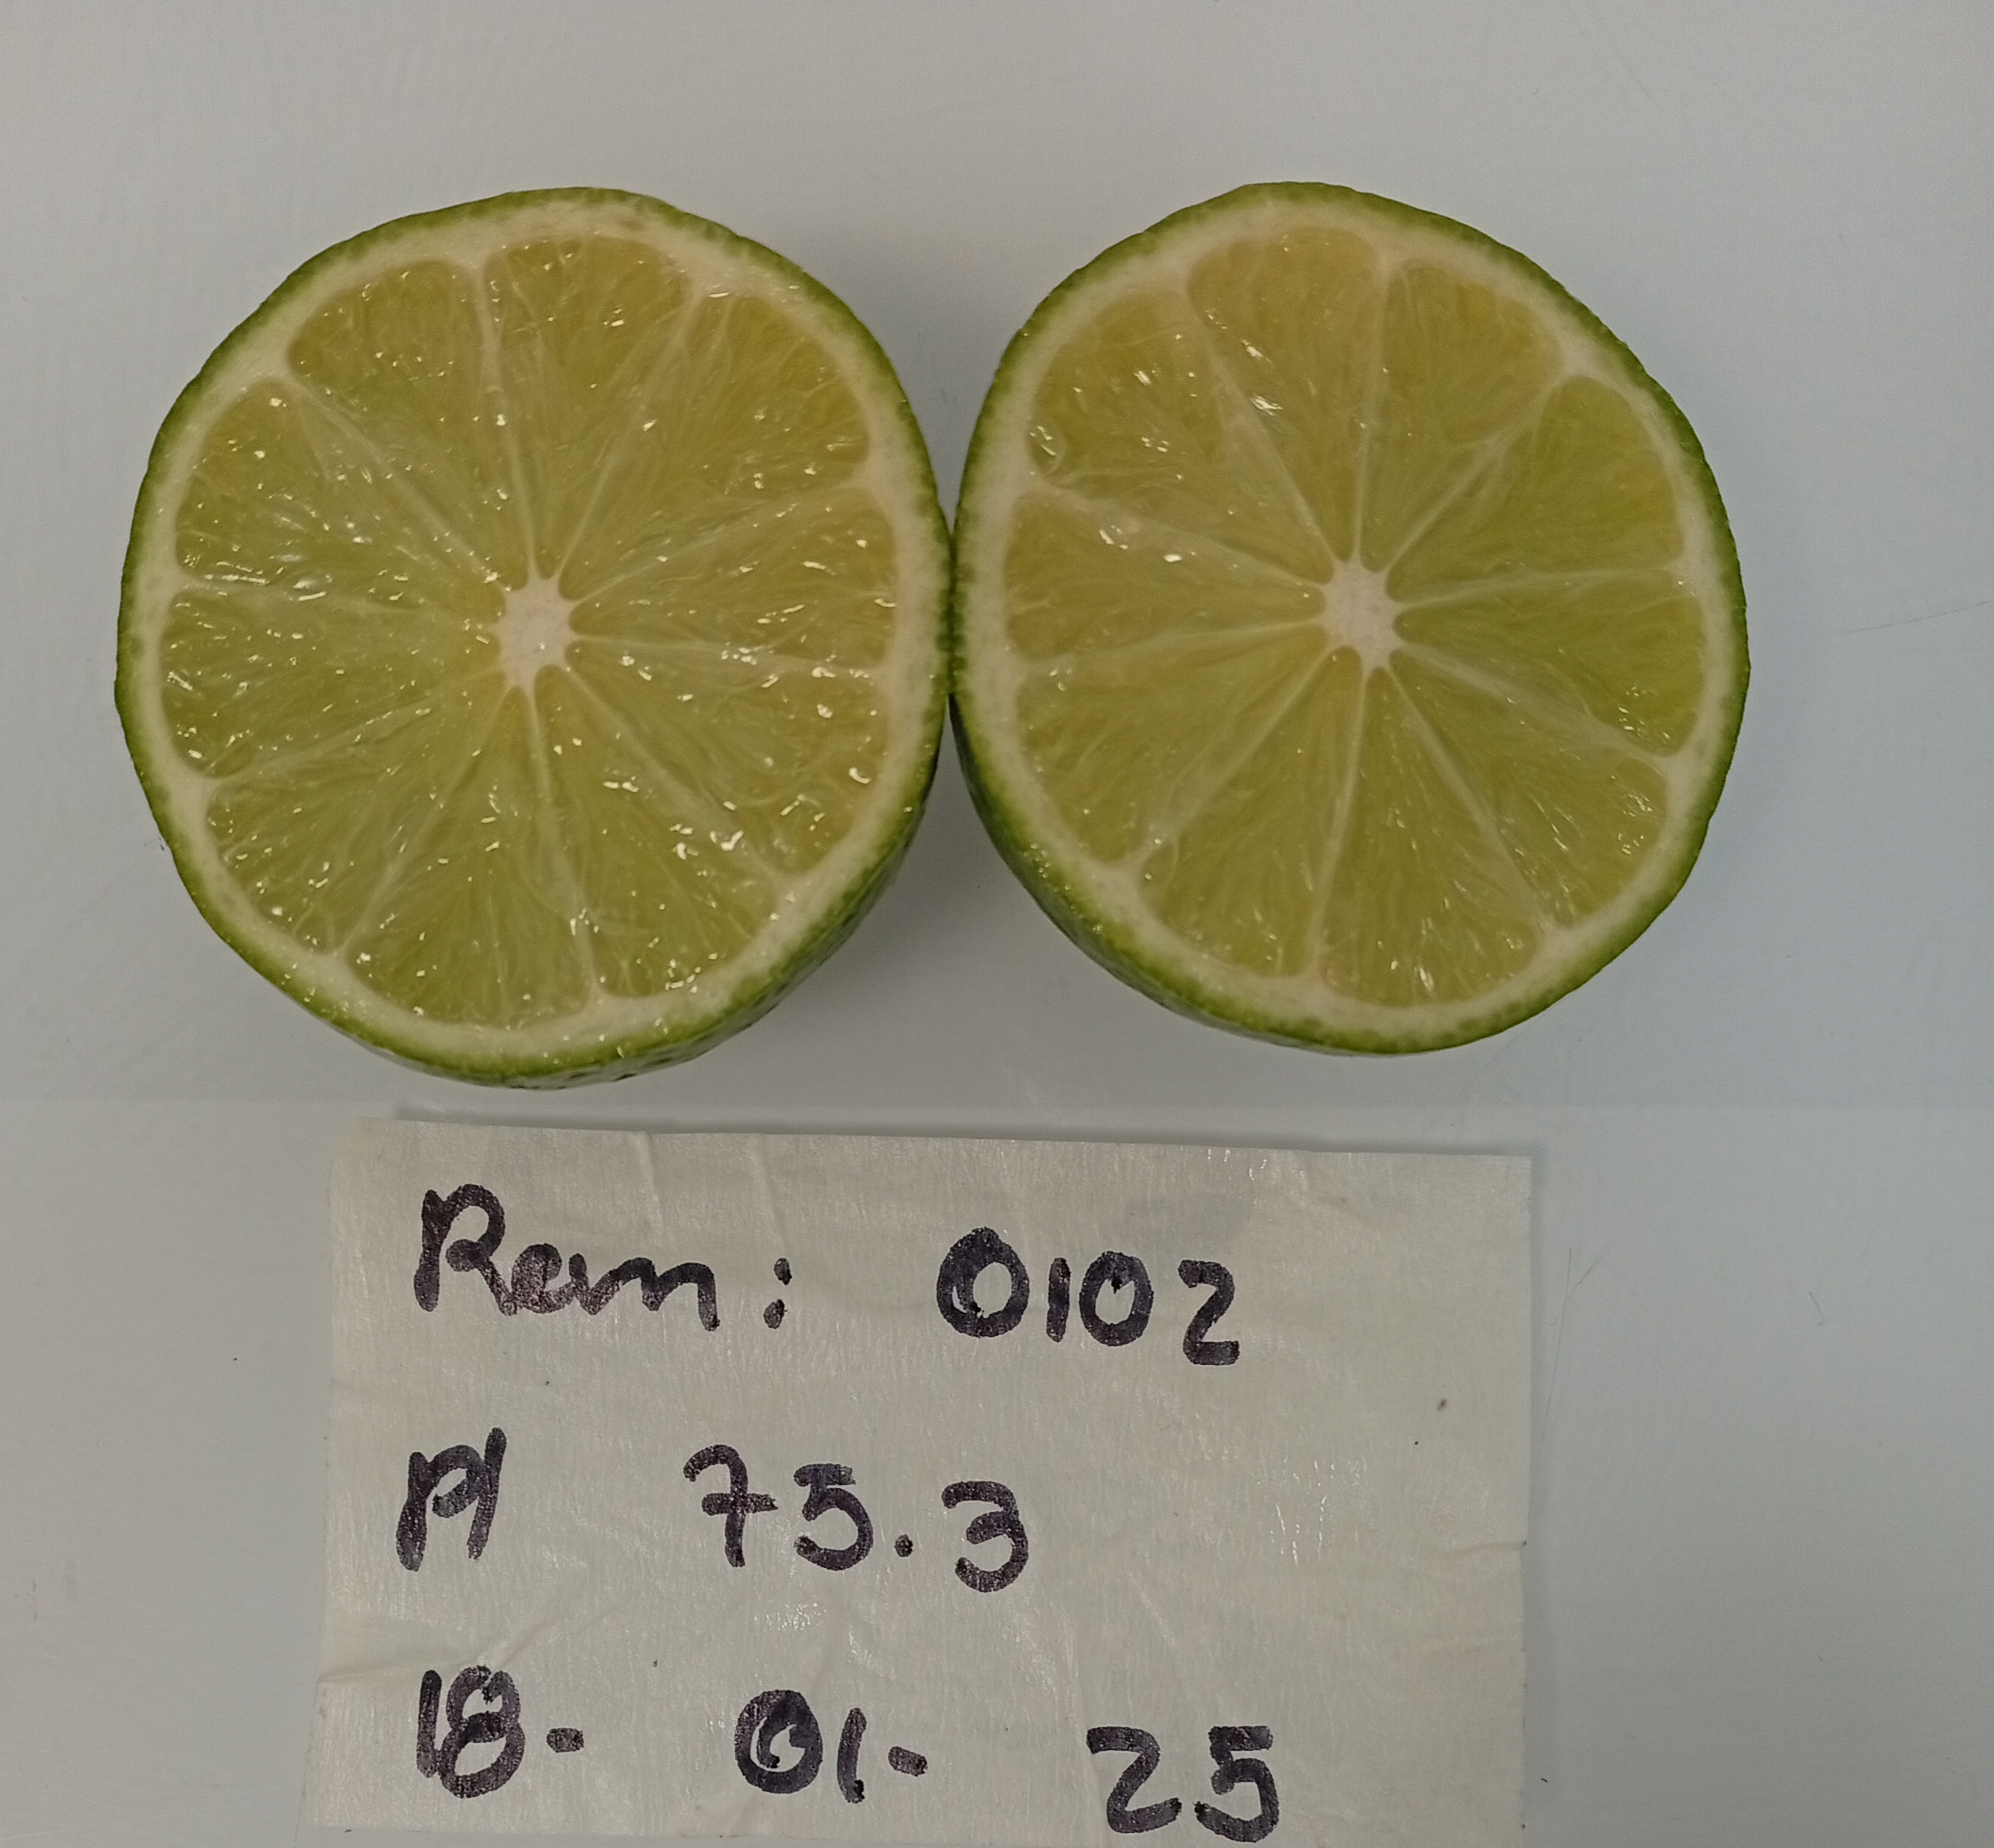 Rem: 0102
Pl 75.3
18- 01- 25